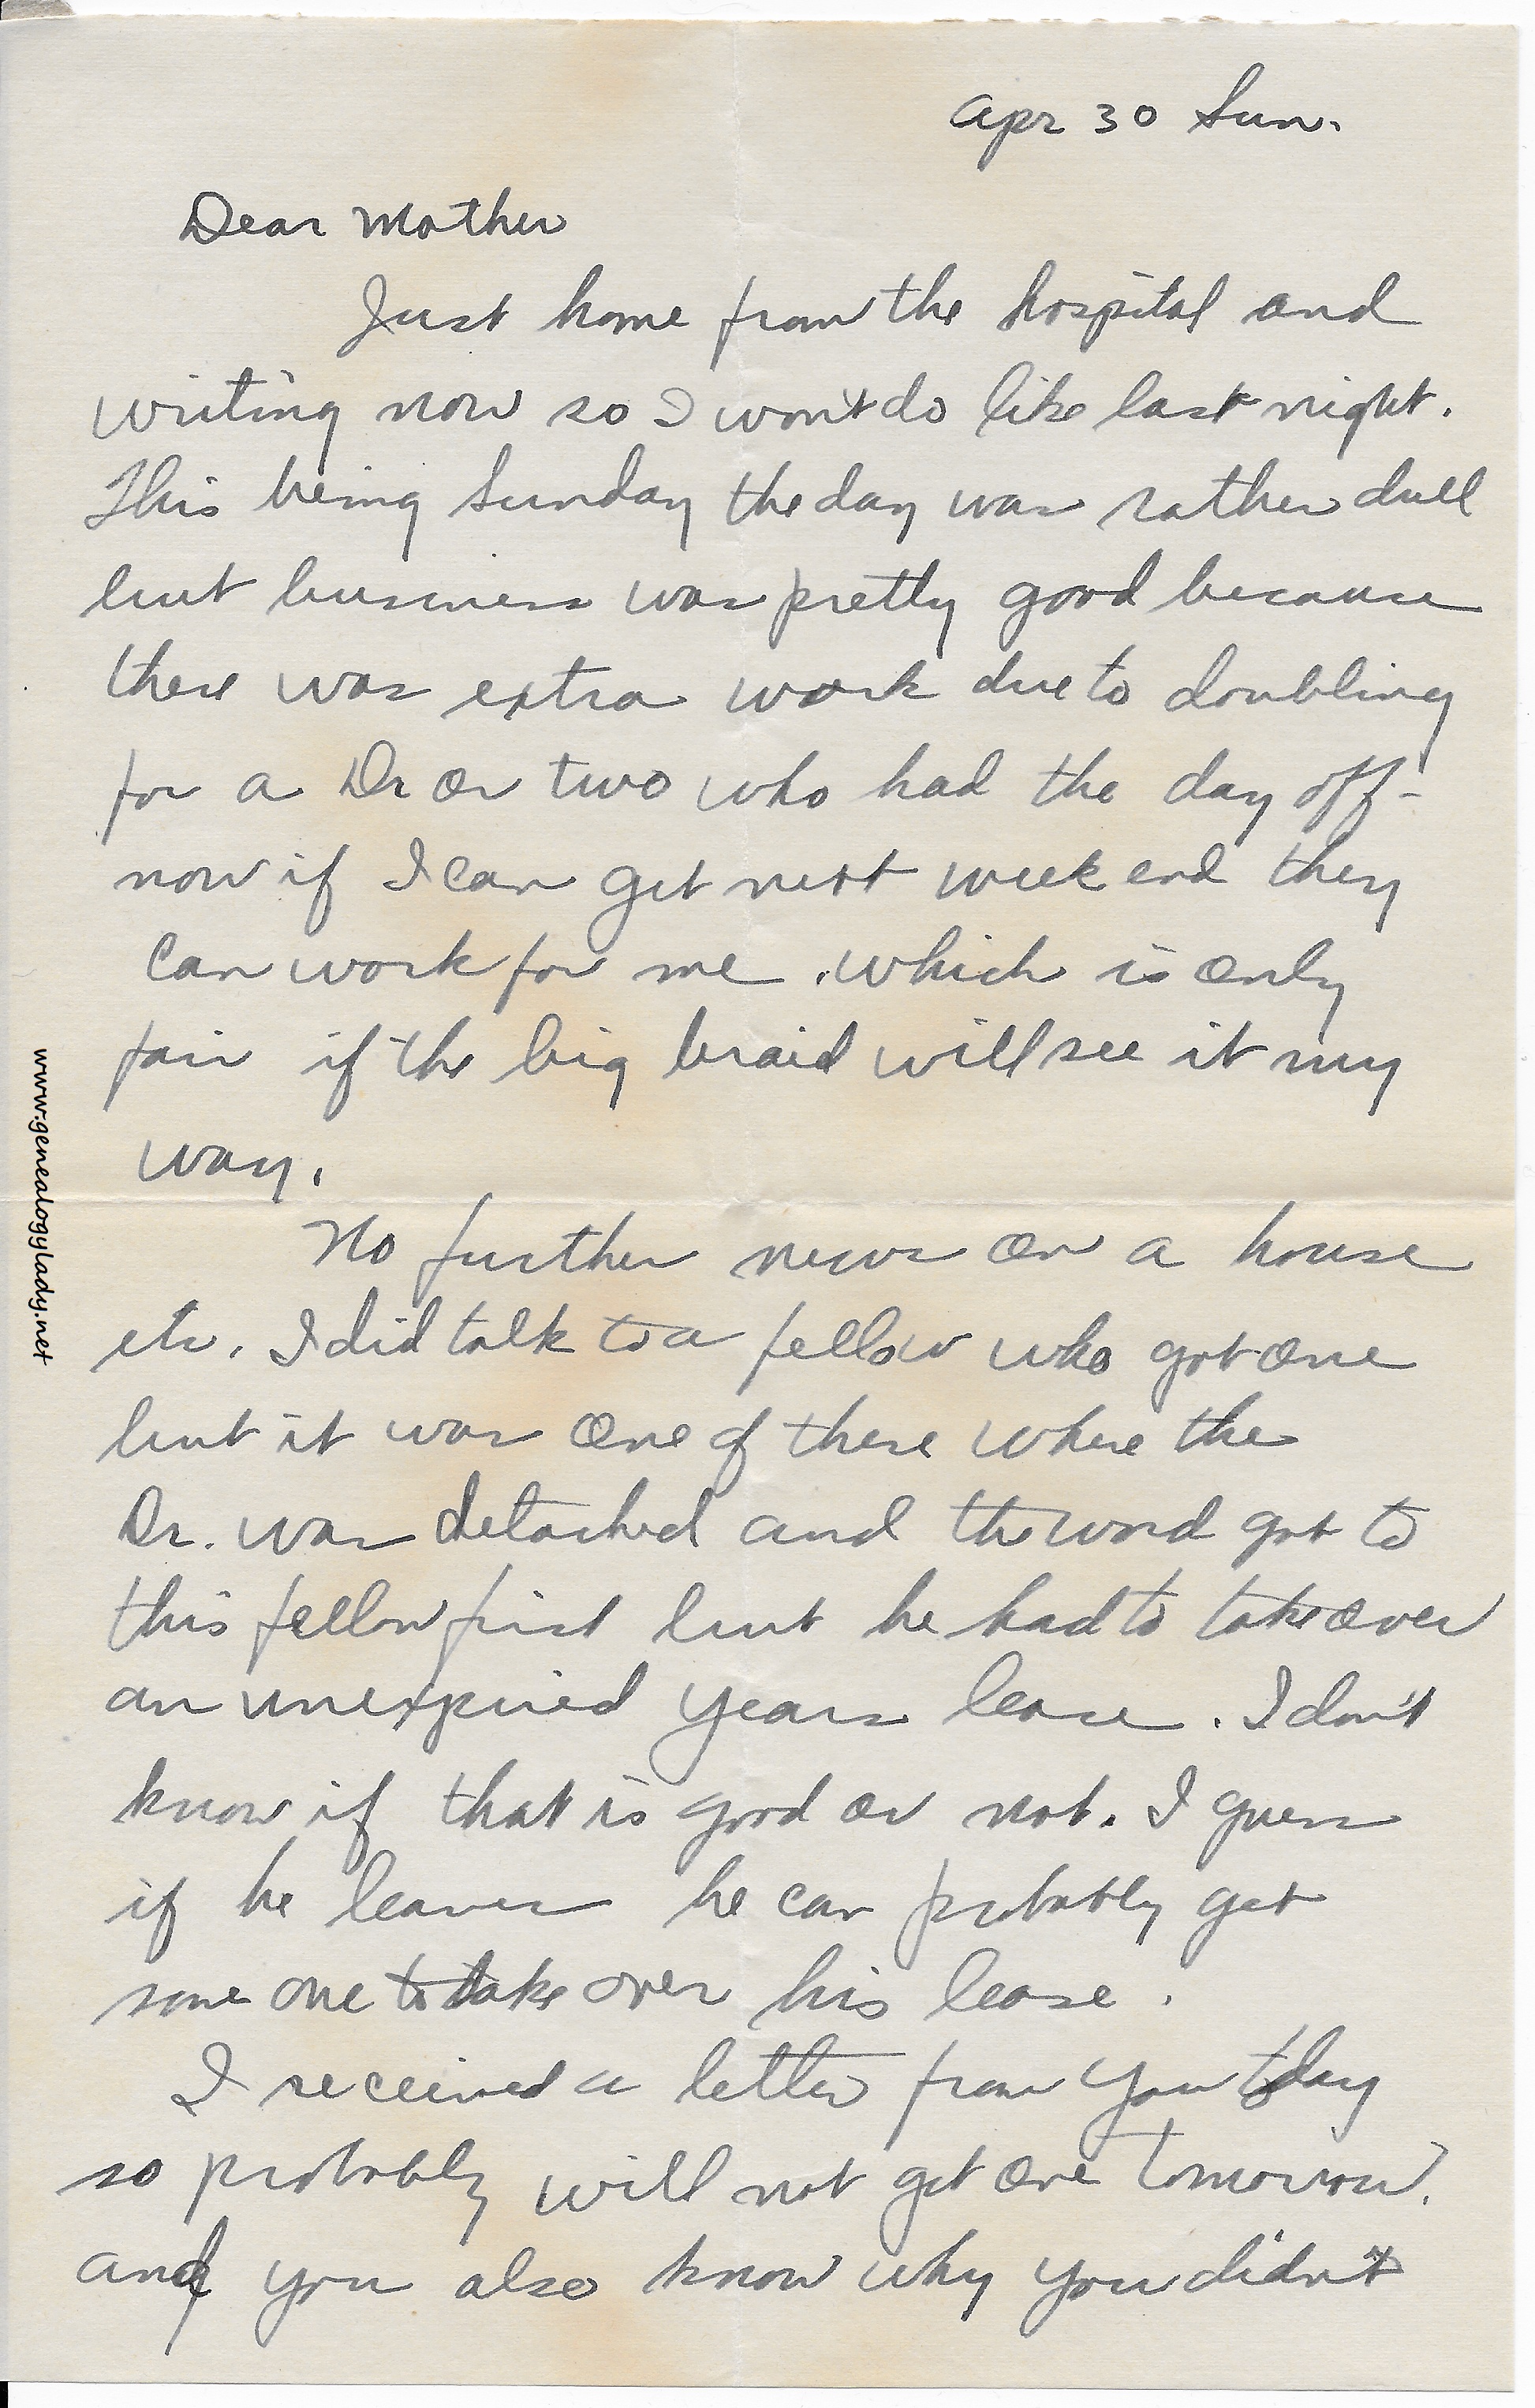 Apr 30 Sun.
Dear Mother
Just home from the hospital and
writing now so I won't do like last night.
This being Sunday the day was rather dull
but business was pretty good because
there was extra work due to doubling
for a Dr or two who had the day off-
now if I can get next week end they
can work for me. which is only
fair if the big braid will see it my
way.
No further news on a house
etc. I did talk to a fellow who got one
but it was one of these where the
Dr. was detached and the word got to
this fellow first but he had to take over
an unexpired years lease. I don't
know if that is good or not. I guess
if he leaves he can probably get
some one to take over his lease.
I received a letter from you today
so probably will not get one tomorrow.
and you also know why you didn't
www.genealogylady.net